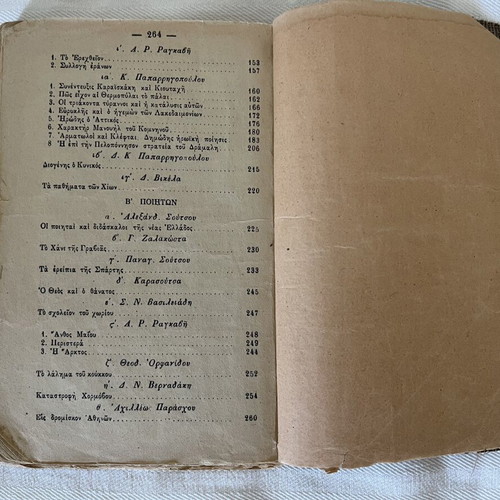 — 264 —
ι΄. Α. Ρ. Ραγκαβῆ
1. Τὸ Ἐρεχθεῖον 153
2. Συλλογὴ ἐράνων 157
ια΄. Κ. Παπαρρηγοπούλου
1. Συνέντευξις Καραϊσκάκη καὶ Κιουταχῆ 160
2. Πῶς εἶχον αἱ Θερμοπύλαι τὸ πάλαι 162
3. Οἱ τριάκοντα τύραννοι καὶ ἡ κατάλυσις αὐτῶν 166
4. Εὐρυκλῆς καὶ ὁ ἡγεμὼν τῶν Λακεδαιμονίων 172
5. Ἡρώδης ὁ Ἀττικός 176
6. Χαρακτὴρ Μανουὴλ τοῦ Κομνηνοῦ 180
7. Ἁρματωλοὶ καὶ Κλέφται. Δημώδης ἡρωϊκὴ ποίησις 183
8 Ἡ ἐπὶ τὴν Πελοπόννησον στρατεία τοῦ Δράμαλη 206
ιβ΄. Δ. Κ Παπαρρηγοπούλου
Διογένης ὁ Κυνικός 215
ιγ΄. Δ. Βικέλα
Τὰ παθήματα τῶν Χίων 220
Β΄ ΠΟΙΗΤΩΝ
α. Ἀλεξάνδ. Σούτσου
Οἱ ποιηταὶ καὶ διδάσκαλοι τῆς νέας Ἑλλάδος 225
β΄. Γ. Ζαλακώστα
Τὸ Χάνι τῆς Γραβιᾶς 230
γ΄. Παναγ. Σούτσου
Τὰ ἐρείπια τῆς Σπάρτης 233
δ΄. Καρασούτσα
Ὁ Θεὸς καὶ ὁ θάνατος 245
ε΄. Σ. Ν. Βασιλειάδη
Τὸ σχολεῖον τοῦ χωρίου 247
ς΄. Α. Ρ. Ραγκαβῆ
1. Ἄνθος Μαΐου 248
2. Περιστερά 249
3. Ἡ Ἄρκτος 244
ζ΄. Θεοδ. Ὀρφανίδου
Τὸ λάλημα τοῦ κούκκου 252
η΄. Δ. Ν. Βερναδάκη
Καταστροφὴ Χορμόβου 254
θ. Ἀχιλλέως Παράσχου
Εἰς δρομίσκον Ἀθηνῶν 260